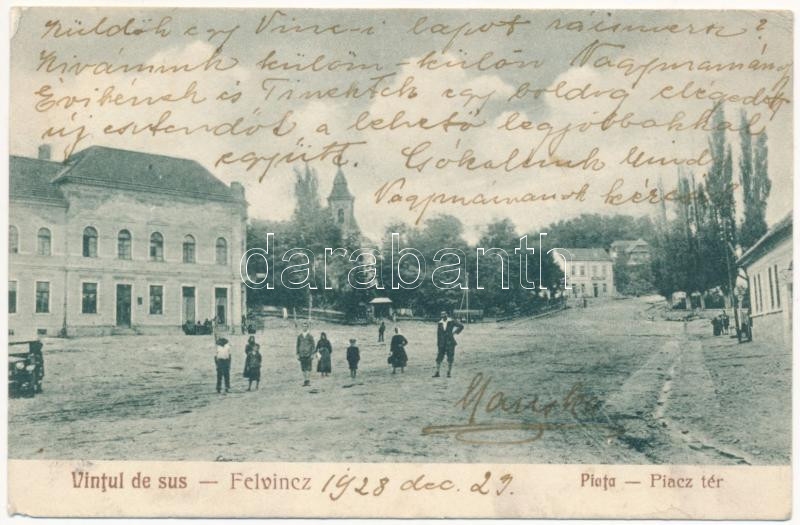 Küldök egy Vinc-i lapot ráismersz?
Kivánunk külön-külön Nagymamáng
Évikének és Tinektek egy boldog elégedett
új esztendőt a lehető legjobbakkal
együtt. Csókolunk Mind
Nagymamának kézcsók
darabanth.com
Vințul de sus — Felvincz 1928 dec. 29.
Piața — Piacz tér